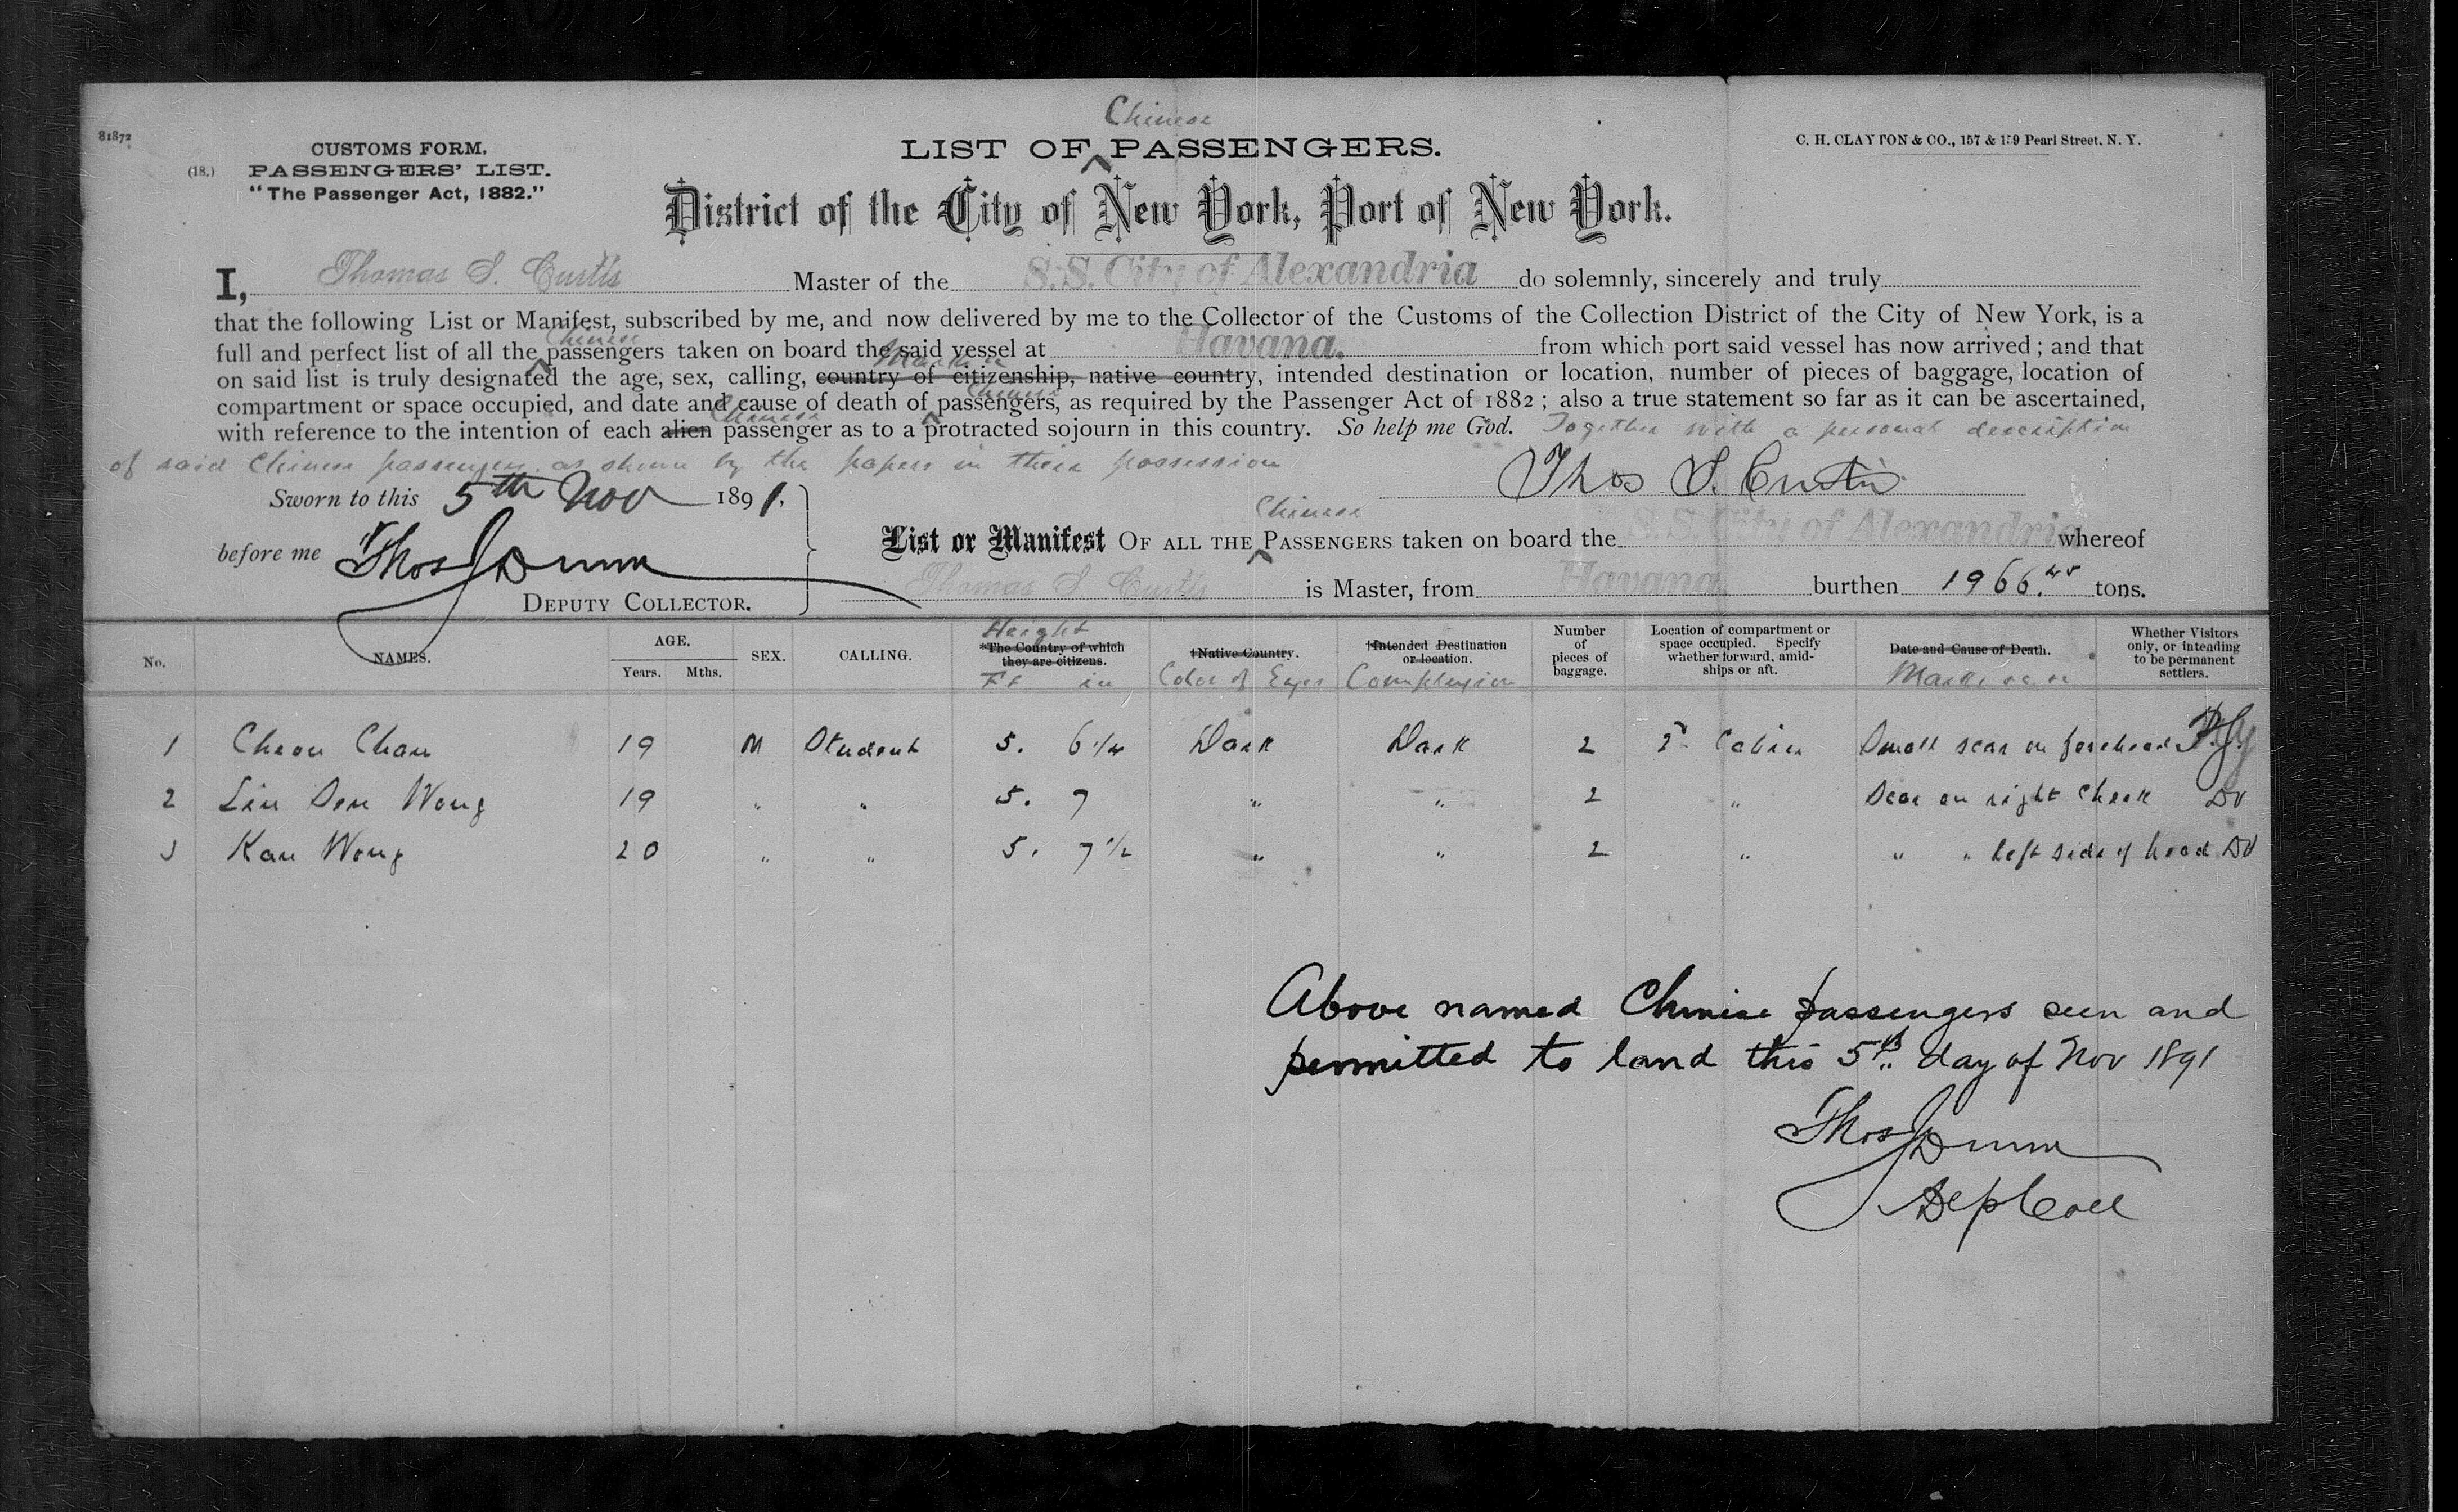 81872
Chinese
LIST OF PASSENGERS.
C. H. CLAYTON & CO., 157 & 159 Pearl Street, N. Y.
CUSTOMS FORM.
(18.) PASSENGERS' LIST.
"The Passenger Act, 1882."
District of the City of New York, Port of New York.
I, Thomas S. Curtis Master of the S.S. City of Alexandria do solemnly, sincerely and truly
that the following List or Manifest, subscribed by me, and now delivered by me to the Collector of the Customs of the Collection District of the City of New York, is a
Chinese
full and perfect list of all the passengers taken on board the said vessel at Havana. from which port said vessel has now arrived; and that
on said list is truly designated the age, sex, calling, country of citizenship, native country, intended destination or location, number of pieces of baggage, location of
Chinese
compartment or space occupied, and date and cause of death of passengers, as required by the Passenger Act of 1882; also a true statement so far as it can be ascertained,
Chinese
with reference to the intention of each alien passenger as to a protracted sojourn in this country. So help me God. Together with a personal description
of said Chinese passengers as shown by the papers in their possession
Thos S. Curtis
Sworn to this 5th Nov 1891.
before me Thos J Dunn
DEPUTY COLLECTOR.
Chinese
List or Manifest OF ALL THE PASSENGERS taken on board the S.S. City of Alexandria whereof
Thomas S. Curtis is Master, from Havana burthen 1966. tons.
No. NAMES. AGE. Years. Mths. SEX. CALLING. Height *The Country of which they are citizens. Ft in †Native Country. Color of Eyes †Intended Destination or location. Complexion Number of pieces of baggage. Location of compartment or space occupied. Specify whether forward, amidships or aft. Date and Cause of Death. Marks Whether Visitors only, or intending to be permanent settlers.
1 Cheon Chan 19 M Student 5. 6 1/4 Dark Dark 2 Cabin Small scar on forehead
2 Lin Sen Wong 19 " " 5. 7 " " 2 " Scar on right Cheek DV
3 Kan Wong 20 " " 5. 7 1/2 " " 2 " " " left side of head DV
Above named Chinese passengers seen and
permitted to land this 5th day of Nov 1891
Thos J Dunn
Dep Coll